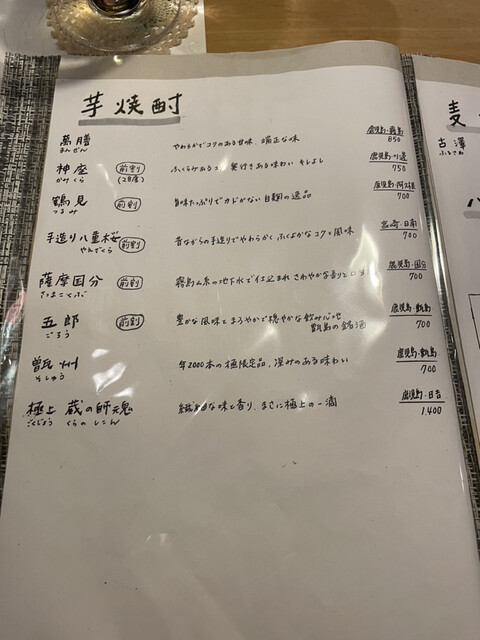 芋焼酎
萬膳 やわらかでコクのある甘味、端正な味 鹿児島・霧島
まんぜん 850
神座 前割 ふくらみある 奥行きある味わい キレよし 鹿児島・川辺
かみくら 750
鶴見 前割 旨味たっぷりでカドがない自麹の逸品 鹿児島・阿久根
つるみ 700
手造り八重桜 前割 昔ながらの手造りでやわらかく、ふくよかなコクと風味 宮崎・日南
やえざくら 700
薩摩国分 前割 霧島山系の地下水で仕込まれ さわやかな香りと 鹿児島・国分
さつまこくぶ 700
五郎 前割 豊かな風味とまろやかで穏やかな飲み心地 鹿児島・甑島
ごろう 甑島の銘酒 700
甑州 年2000本の極限定品、深みのある味わい 鹿児島・甑島
そしゅう 700
極上 蔵の師魂 な味と香り、まさに極上の一滴 鹿児島・日吉
ごくじょう くらのしこん 1,400
麦
古澤
ふるさわ